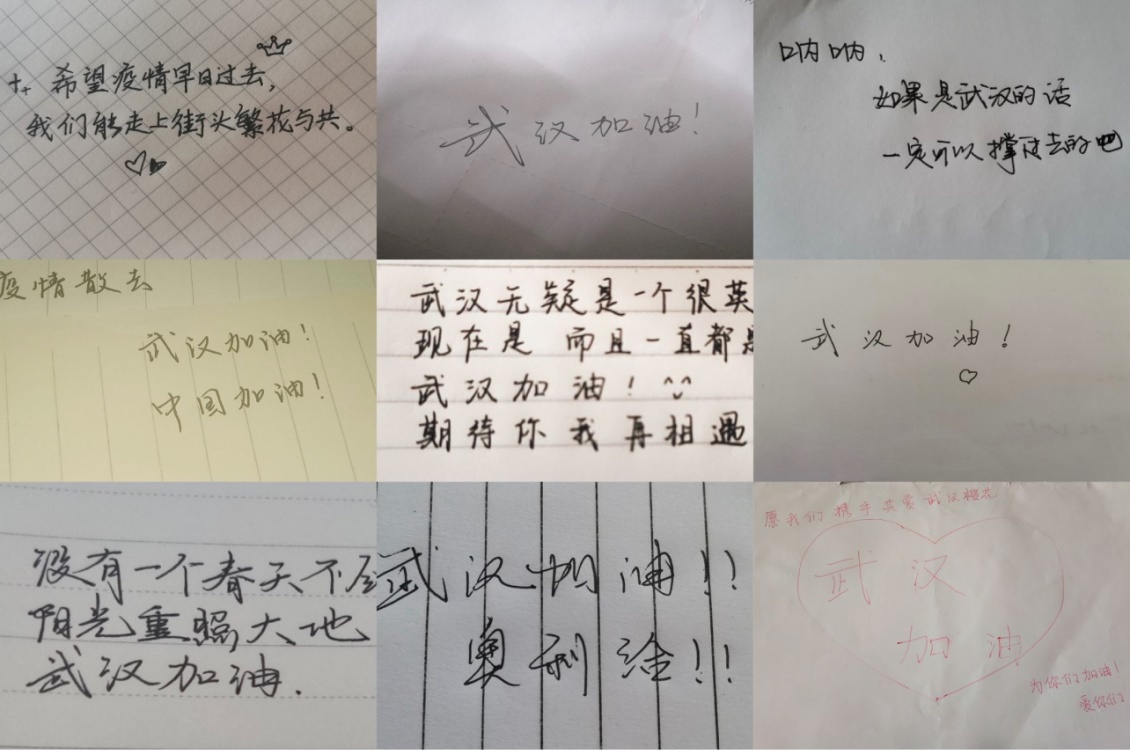 希望疫情早日过去，
我们能走上街头繁花与共。
武汉加油！
呐呐，
如果是武汉的话
一定可以撑过去的吧
疫情散去
武汉加油！
中国加油！
武汉无疑是一个很英
现在是 而且一直都是
武汉加油！^^
期待你我再相遇
武汉加油！
没有一个春天不会
阳光重照大地
武汉加油.
武汉加油!!
奥利给!!
愿我们携手共赏武汉樱花
武汉
加油
为你们加油！
爱你们